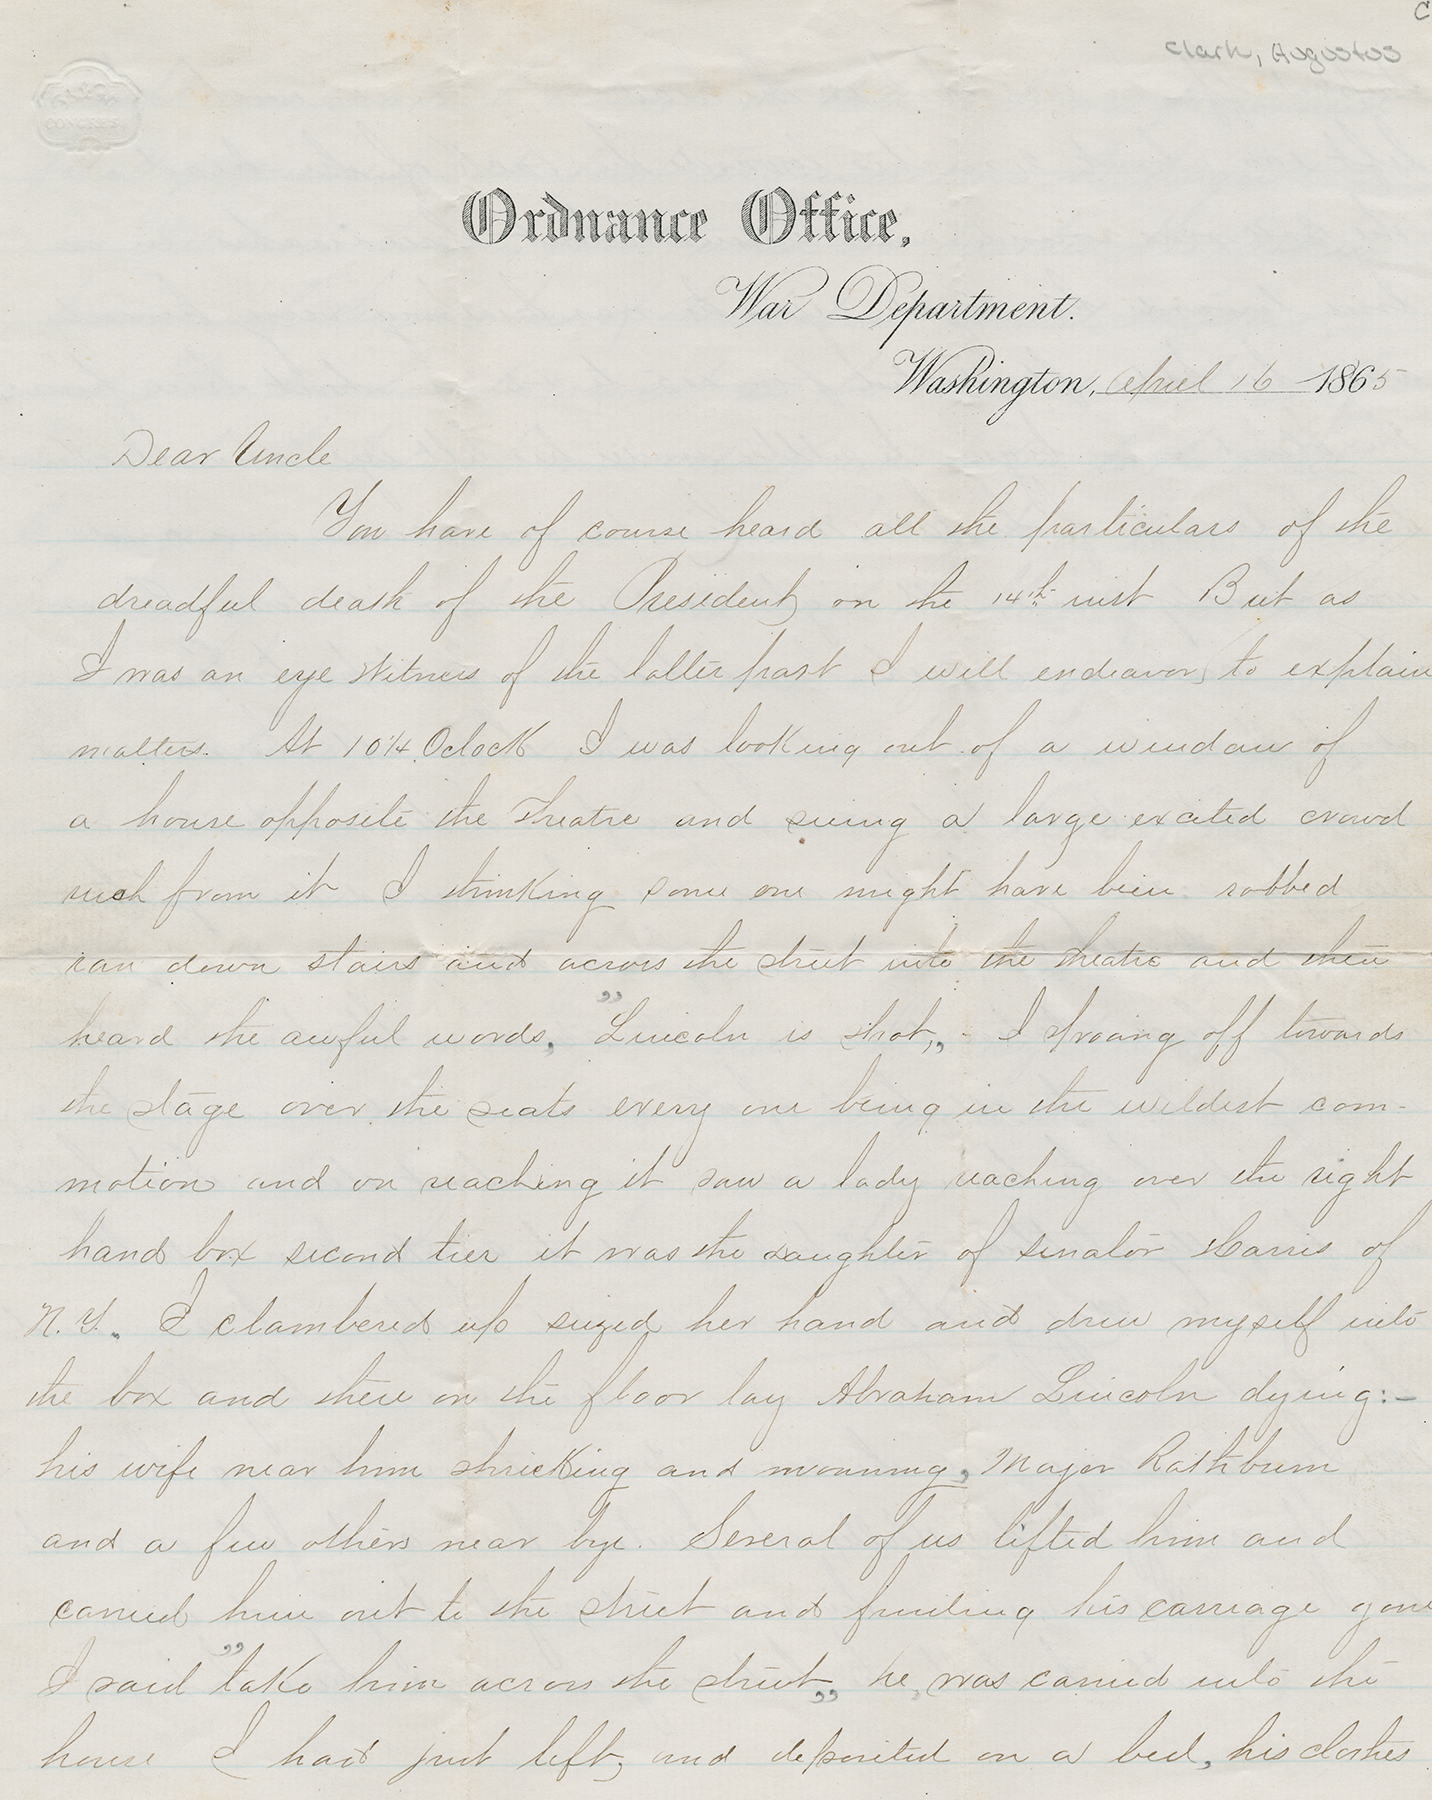 C
Clark, Augustus
CONGRESS
Ordnance Office,
War Department.
Washington, April 16 1865
Dear Uncle
You have of course heard all the particulars of the
dreadful death of the President, on the 14th inst But as
I was an eye witness of the latter part I will endeavor, to explain
matters. At 10 1/4 Oclock I was looking out of a window of
a house opposite the Theatre and seeing a large excited crowd
rush from it I thinking some one might have been robbed
ran down stairs and across the street into the theatre and then
heard the awful words, "Lincoln is shot," - I sprang off towards
the stage over the seats every one being in the wildest com-
motion and on reaching it saw a lady reaching over the right
hand box second tier it was the daughter of senator Harris of
N.Y. I clambered up seized her hand and drew myself into
the box and there on the floor lay Abraham Lincoln dying:-
his wife near him shrieking and mourning, Major Rathburn
and a few others near bye. Several of us lifted him and
carried him out to the street and finding his carriage gone
I said "take him across the street," he, was carried into the
house I had just left, and deposited on a bed, his clothes